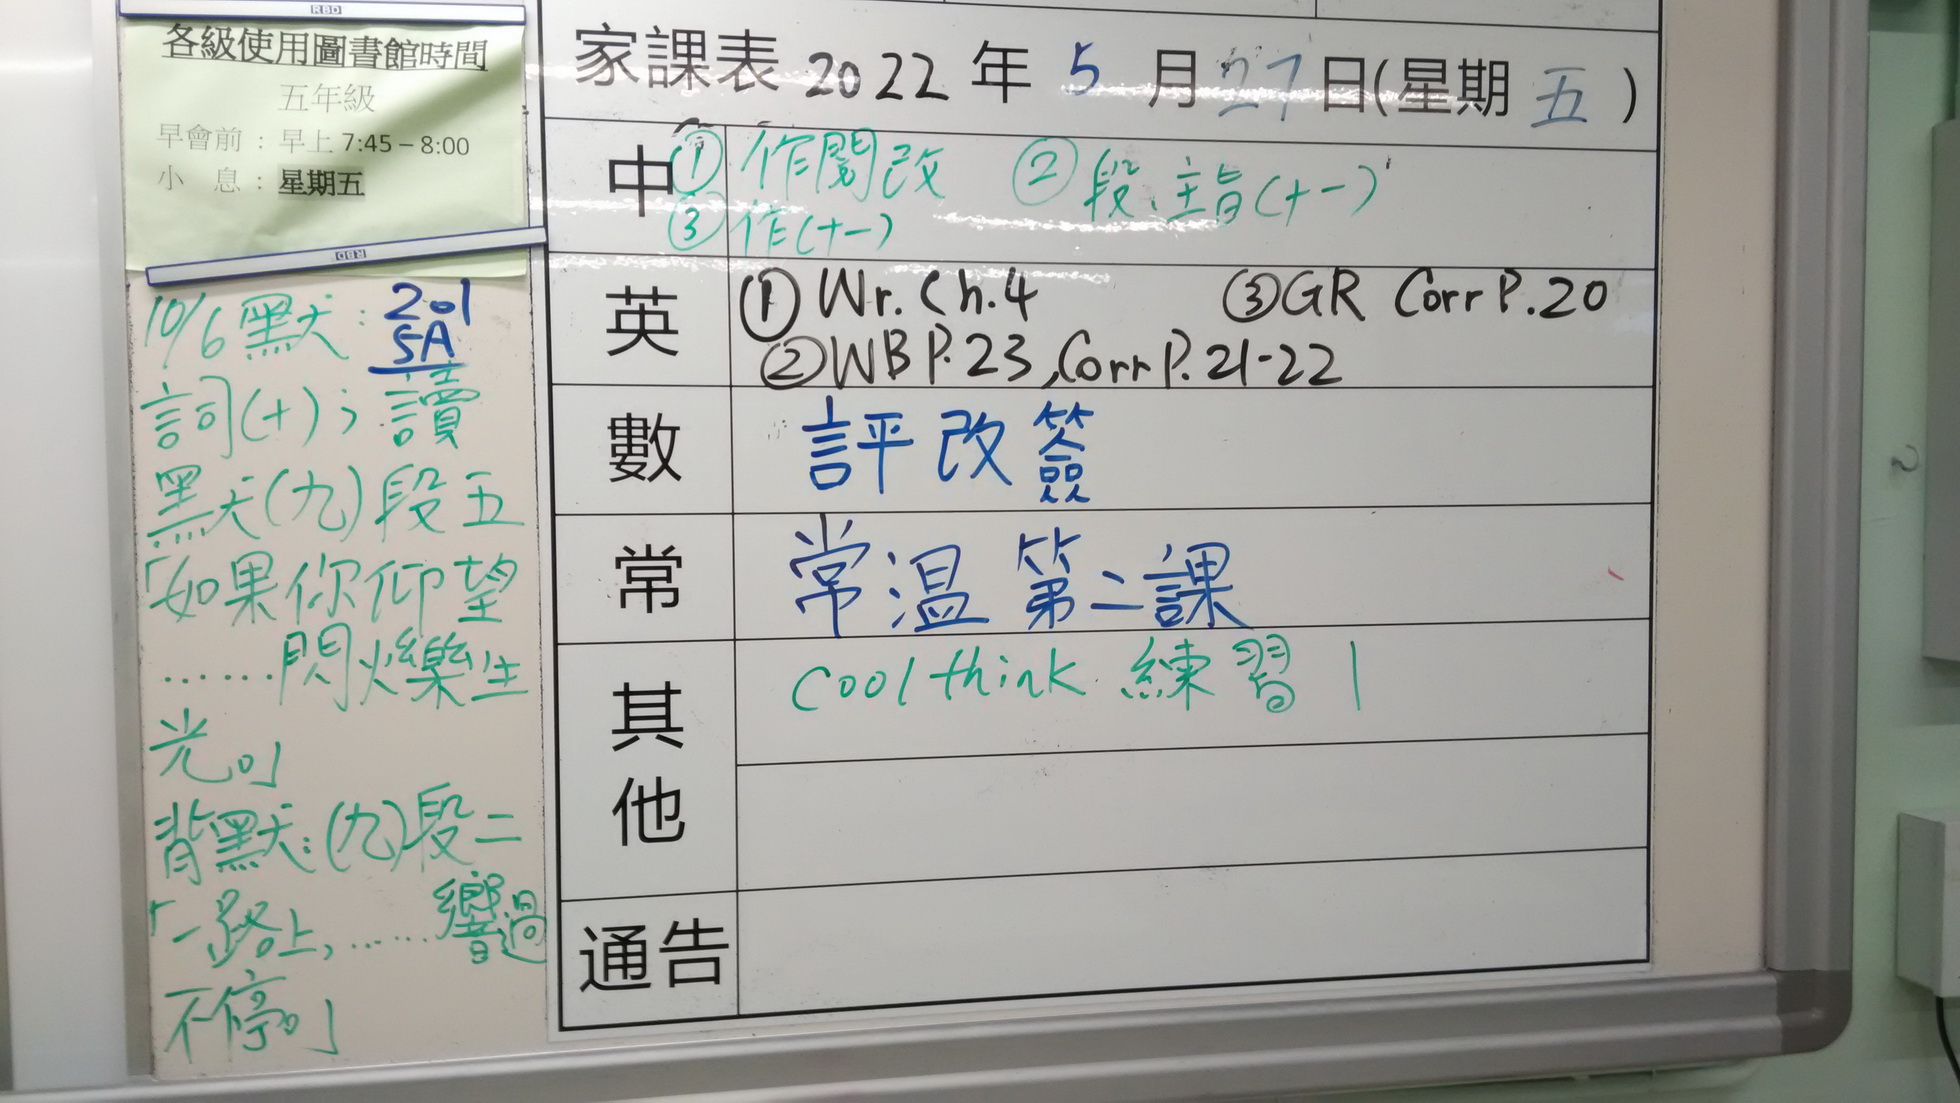 RBD
各級使用圖書館時間
五年級
早會前：早上 7:45 – 8:00
小 息：星期五
RBD
10/6 默：
201
5A
詞(十)；讀
默(九)段五
「如果你仰望
……閃爍
光。」
背默：(九)段二
「一路上，……響過
不停。」
家課表 2022 年 5 月 27 日(星期 五 )
中 ① 作閱改 ② 段、主旨(十一)
③ 作(十一)
英 ① Wr. Ch.4 ③ GR Corr P.20
② WB P.23, Corr P.21-22
數 評改簽
常 常溫 第二課
其他 Coolthink 練習 1
通告